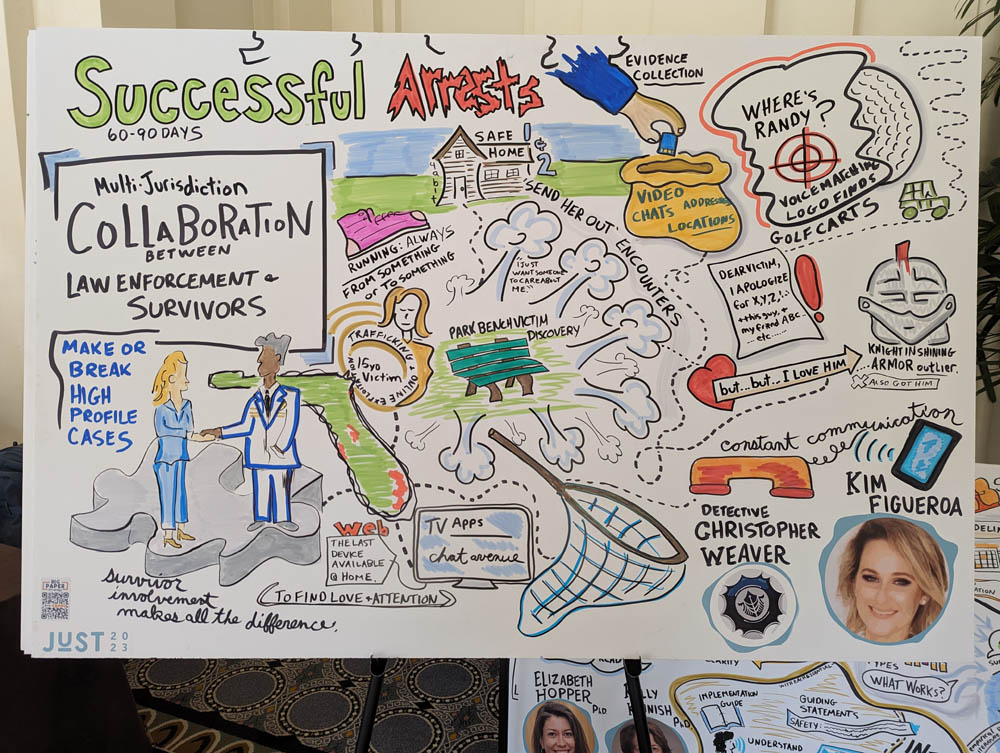 Successful Arrests
60-90 DAYS
Multi-Jurisdiction
COLLABORATION
BETWEEN
LAW ENFORCEMENT &
SURVIVORS
MAKE OR
BREAK
HIGH
PROFILE
CASES
survivor
involvement
makes all the difference.
BIG
PAPER
JUST 20
23
SAFE 1
HOME & 2
RUNNING: ALWAYS
FROM SOMETHING
OR TO SOMETHING
SEND HER OUT ENCOUNTERS
"I JUST
WANT SOMEONE
TO CARE ABOUT
ME."
TRAFFICKING & ONLINE
15yo
Victim
PARK BENCH VICTIM
DISCOVERY
Web
THE LAST
DEVICE
AVAILABLE
@ HOME.
TO FIND LOVE + ATTENTION
TV APPS
chat avenue
EVIDENCE
COLLECTION
VIDEO
CHATS ADDRESSES
LOCATIONS
WHERE'S
RANDY?
VOICE MATCHING
LOGO FINDS
GOLF CARTS
DEAR VICTIM,
I APOLOGIZE
for X,Y,Z,
+ this guy, +
my friend ABC...
etc......
but...but...I LOVE HIM
KNIGHT IN SHINING
....ARMOR outlier.
ALSO GOT HIM
constant communication
DETECTIVE
CHRISTOPHER
WEAVER
KIM
FIGUEROA
ELIZABETH
HOPPER PhD
CLARITY
IMPLEMENTATION
GUIDE
GUIDING
STATEMENTS
SAFETY:
UNDERSTAND
TYPES
WHAT WORKS?